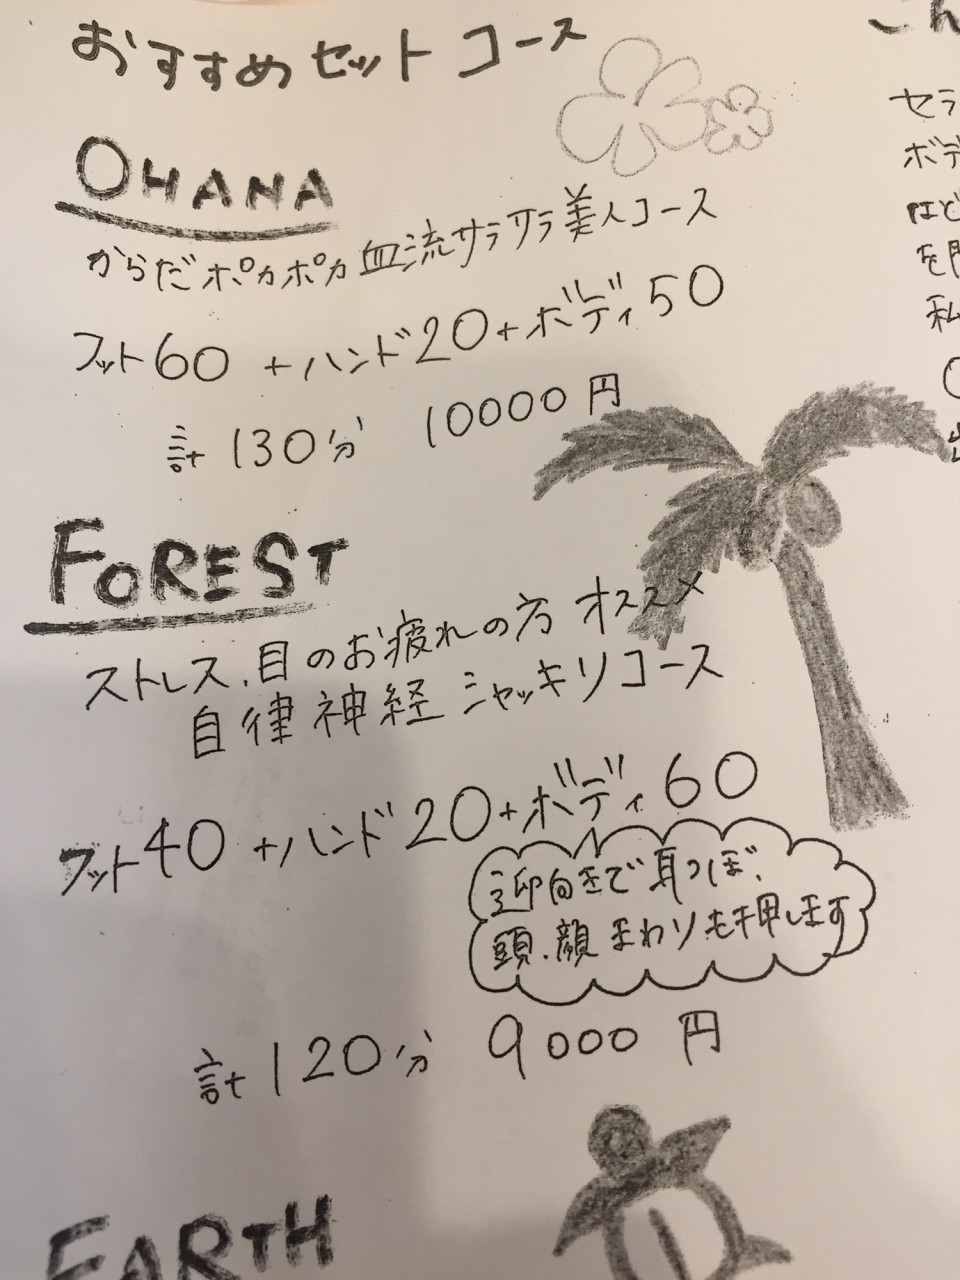 おすすめセットコース
OHANA
からだポカポカ血流サラサラ美人コース
フット60 +ハンド20+ボディ50
計130分 10000円
FOREST
ストレス、目のお疲れの方 オススメ
自律神経シャッキリコース
フット40 +ハンド20+ボディ60
迎向きで耳つぼ、
頭、顔まわりも押します
計120分 9000円
EARTH
セラ
ボデ
ほど
を
私